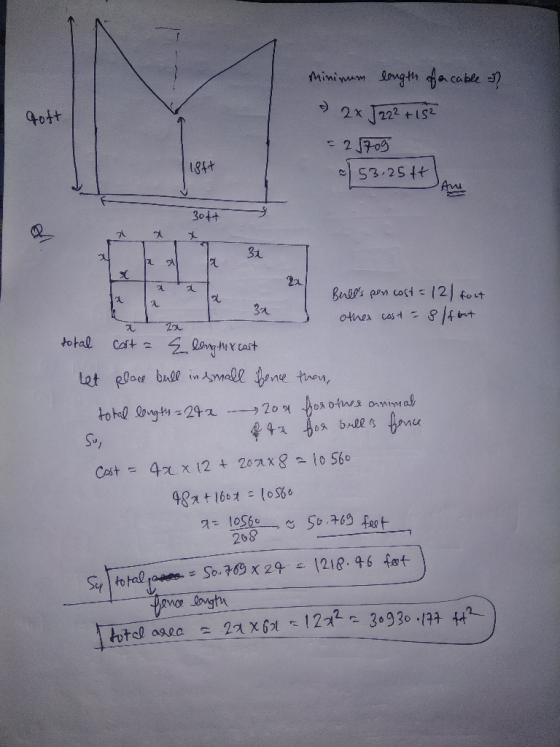 40ft
18ft
30ft
Minimum length of a cable =)?
⇒ 2 × √22² + 15²
= 2 √709
≈ 53.25 ft
Ans
Q
x x x
3x
x x x x
2x
x x x
x x x
3x
x 2x
Bull's pen cost = 12/ foot
other cost = 8/foot
total cost = Σ length x cost
Let place bull in small fence then,
total length = 24x → 20x for other animal
& 4x for bull's fence
So,
Cost = 4x × 12 + 20x × 8 = 10560
48x + 160x = 10560
x = 10560/208 ≈ 50.769 feet
So, total = 50.769 × 24 = 1218.46 feet
fence length
total area = 2x × 6x = 12x² = 30930.177 ft²